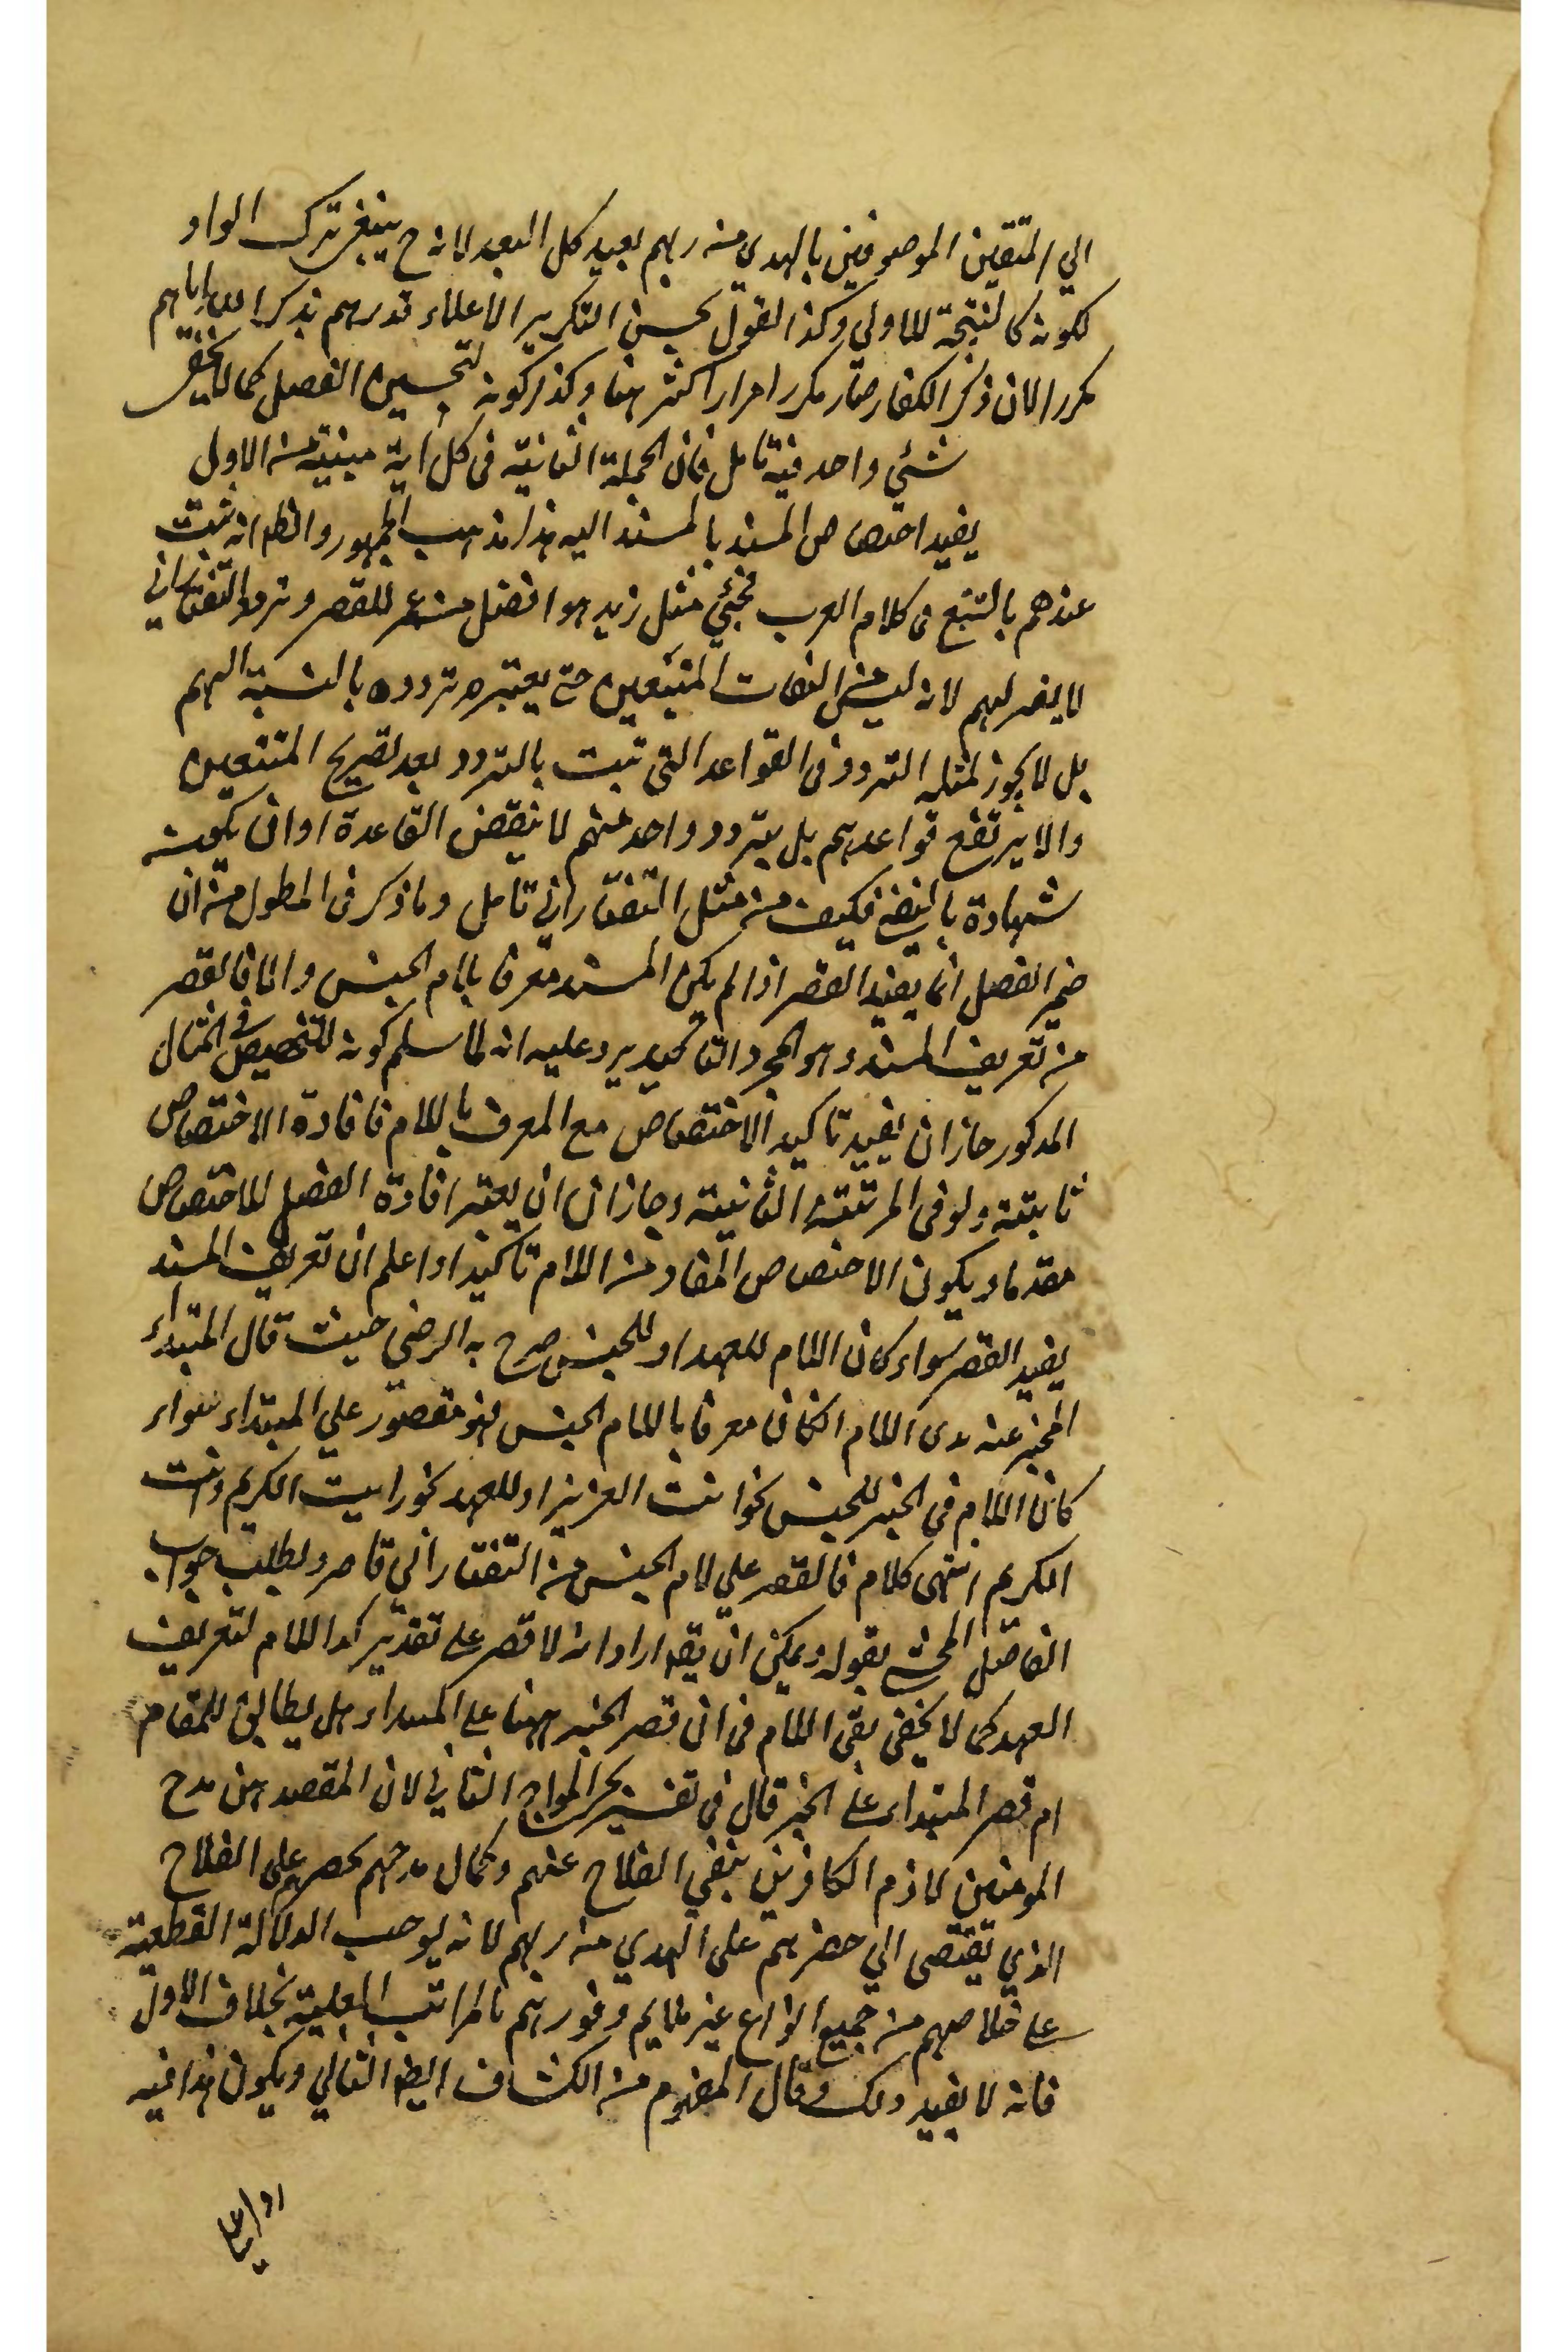 الي المتقين الموصوفين بالهدى من ربهم بعيد كل البعد لانه ح ينبغي ترك الواو
لكونه كالنتيجة للاولي وكذا القول بحسن التكرير لاعلاء قدرهم بذكر الله اياهم
مكررا لان ذكر الكفار صار مكررا مرارا اكثر هنا وكذا كونه لتحسين الفصل كما لا يخفى
شئي واحد فيه تامل فان الجملة الثانية في كل اية مبنية من الاولى
يفيد اختصاص المسند بالمسند اليه هذا مذهب الجمهور والظ انه ثبت
عندهم بالتتبع في كلام العرب فجئي مثل زيد هو افضل من عمر للقصر وتردد التفتازاني
لا يضر لهم لانه ليس من الثقات المتتبعين حتى يعتبر تردده بالنسبة اليهم
بل لا يجوز لمثله التردد في القواعد التي تثبت بالتردد بعد تصريح المتتبعين
والا يرتفع قواعدهم بل بتردد واحد منهم لا ينقض القاعدة او ان يكون
شهادة بالنفي فكيف من مثل التفتازاني تامل وما ذكر في المطول من ان
ضمير الفصل انما يفيد القصر اذا لم يكن المسند معرفا بلام الجنس والا فالقصر
من تعريف المسند وهو لمجرد التاكيد يرد عليه انه لما سلم كونه للتخصيص في المثال
المذكور جاز ان يفيد تاكيد الاختصاص مع المعرف باللام فافادة الاختصاص
ثابتة ولو في المرتبة الثانية وجاز ان يعتبر افادة الفصل الاختصاص
مقدما ويكون الاختصاص المفاد من اللام تاكيدا واعلم ان تعريف المسند
يفيد القصر سواء كان اللام للعهد او للجنس صرح به الرضي حيث قال المبتداء
المخبر عنه بذي اللام ان كان معرفا باللام الجنس فهو مقصور علي المبتداء سواء
كان اللام في الخبر للجنس نحو انت العزيز او للعهد نحو رايت الكريم وانت
الكريم انتهى كلامه فالقصر علي لام الجنس من التفتازاني قاصر ولطلب جواب
الفاضل المحشي بقوله ويمكن ان يقه اراد انه لا قصر على تقدير كون اللام لتعريف
العهد كما لا يخفى بقى الكلام في ان قصر الخبر ههنا علي المبتداء هل يطابق للمقام
ام قصر المبتداء علي الخبر قال في تفسير بحر المواج الثاني لان المقصد هنا مدح
المومنين كما ذم الكافرين بنفي الفلاح عنهم وكمال مدحهم بحصرهم على الفلاح
الذي يقتضى الي حصرهم على الهدي من ربهم لانه يوجب الدلالة القطعية
على خلاصهم من جميع انواع غير ملايم وفوزهم بالمراتب العلية بخلاف الاول
فانه لا يفيد ذلك وقال المفهوم من الكشاف ايضا الثاني ويكون هذا فيه